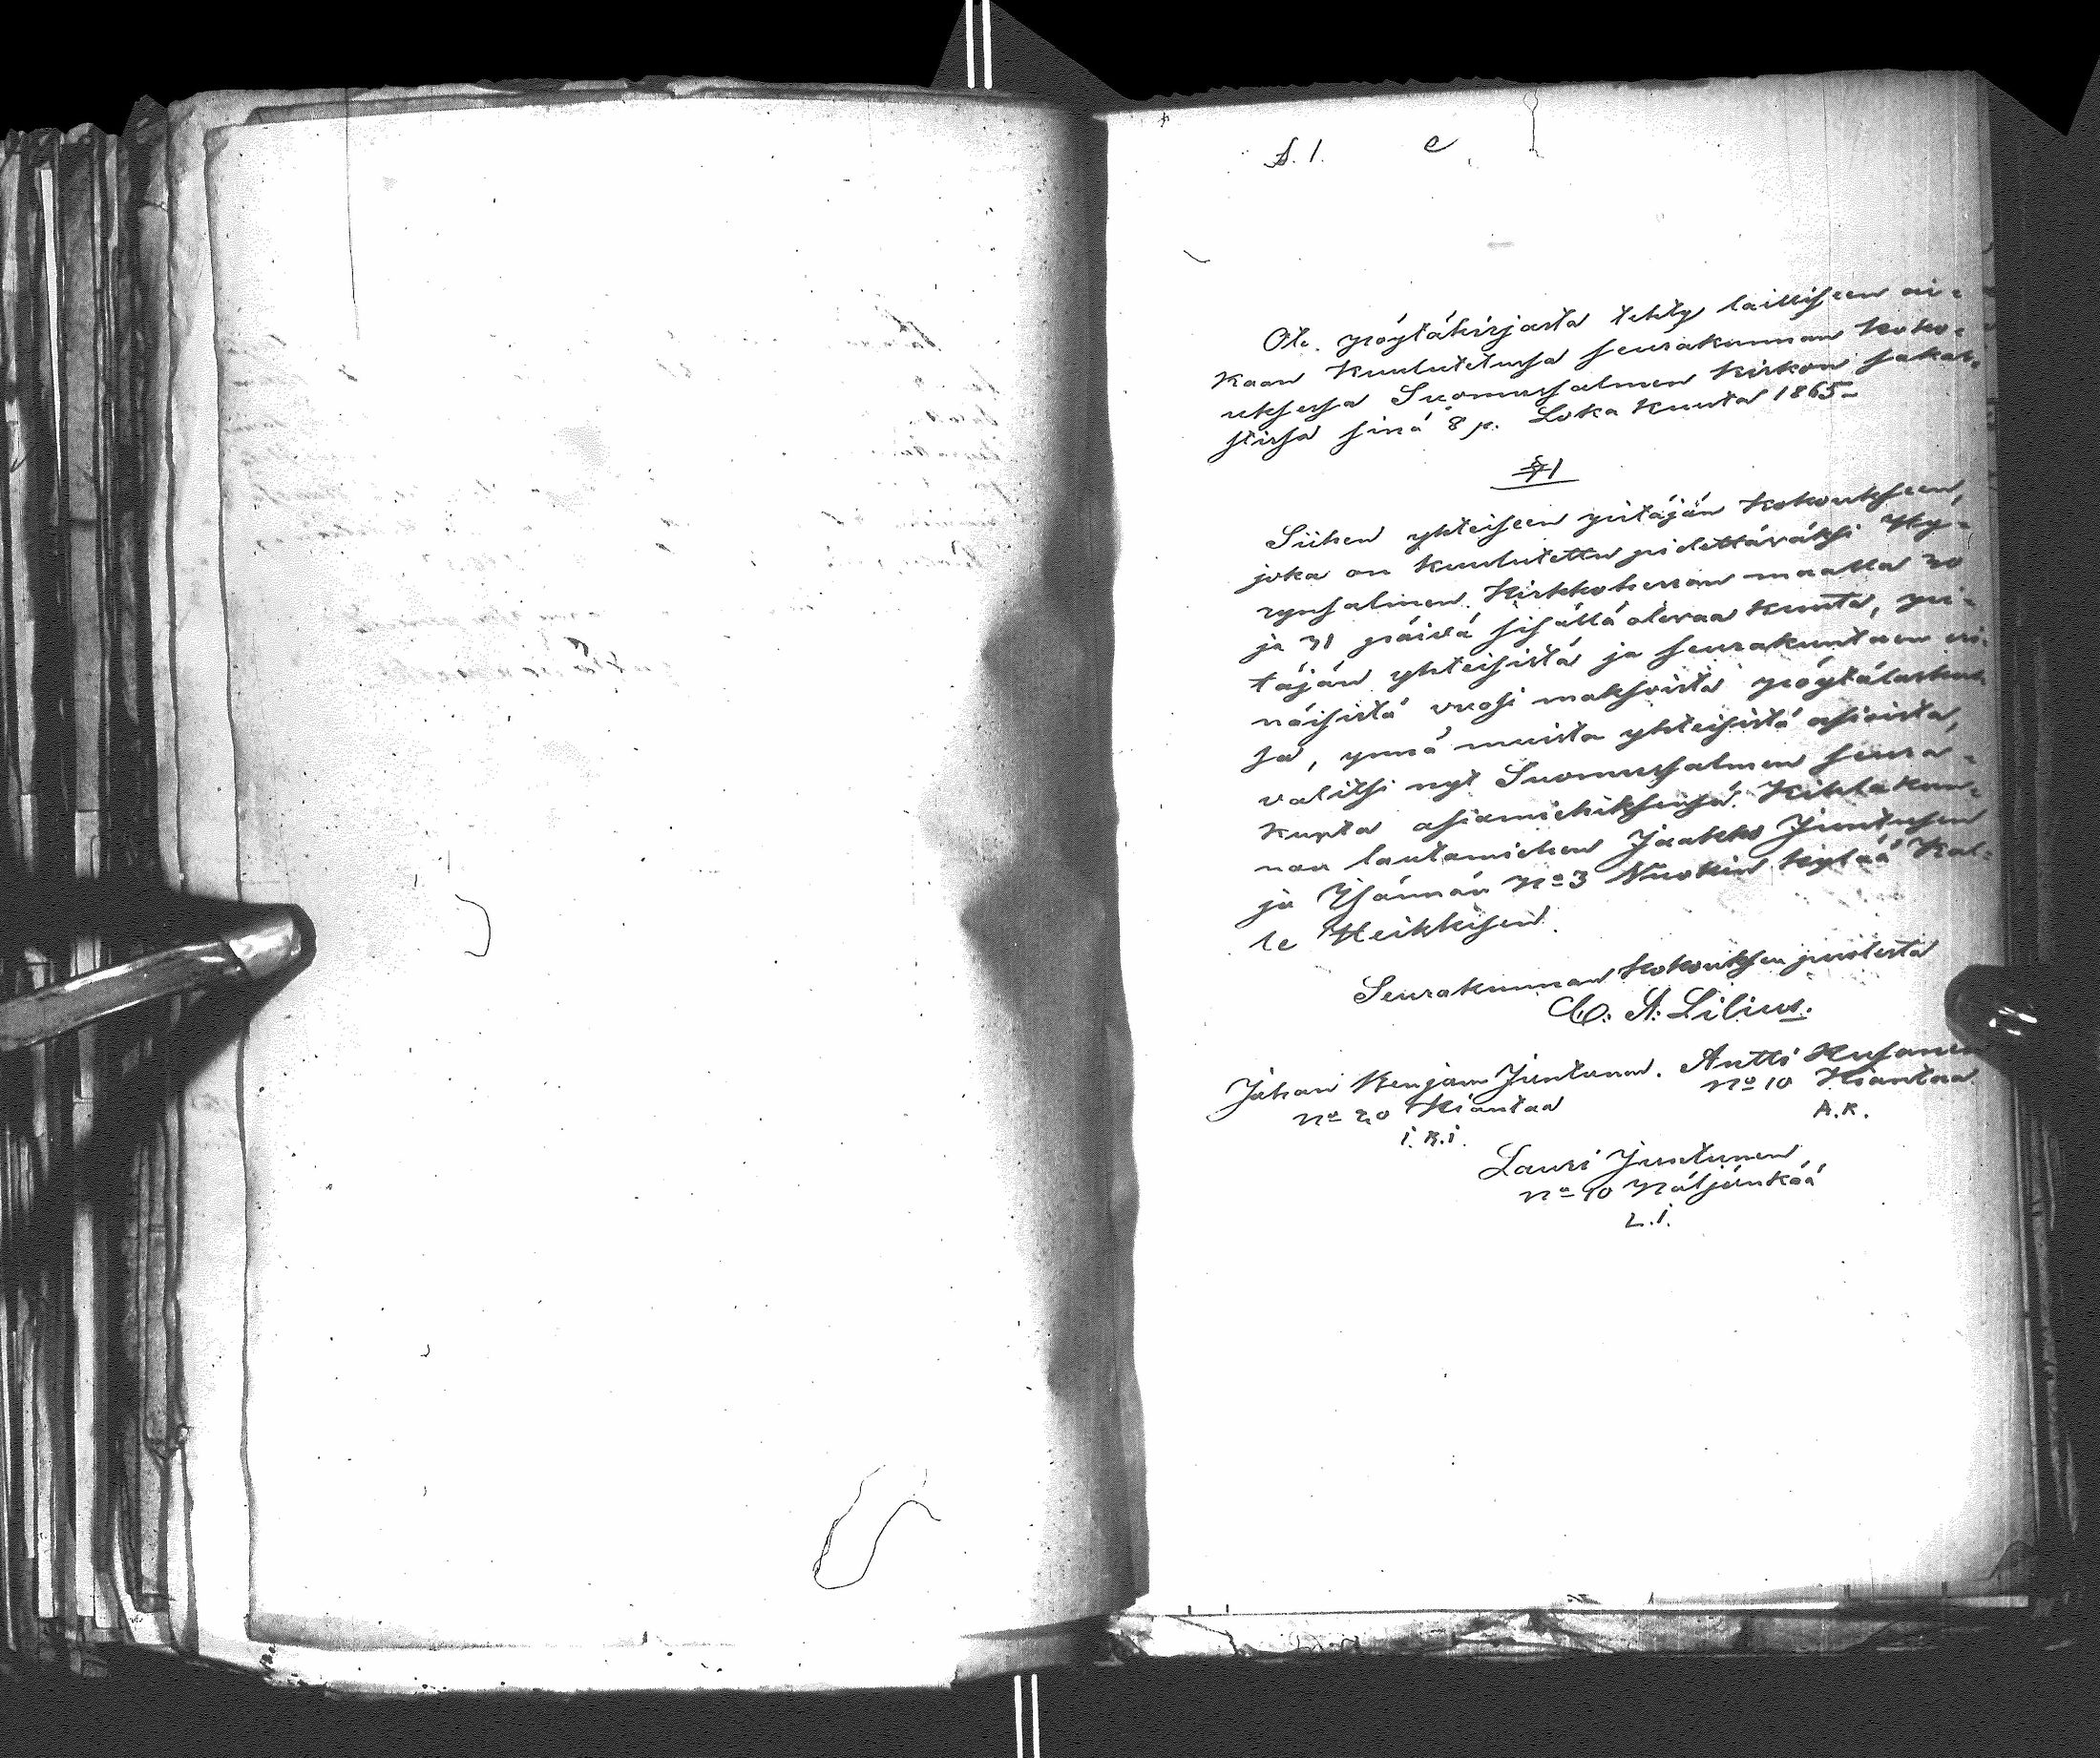 S. 1.
Ote. pöytäkirjasta tehty lailliseen ai=
kaan kuulutetussa seurakunnan koko=
uksessa Suomussalmen kirkon sakas=
tissa sinä 8 p. Loka kuuta 1865—
§ 1
Siihen yhteiseen pitäjän kokoukseen,
joka on kuulutettu pidettäväksi Hy=
rynsalmen Kirkkoherran maalla 30
ja 31 päivä sisällä olevaa kuuta, pi=
täjän yhteisistä ja seurakuntaen eri=
näisistä vuosi maksoista pöytälaskus
sa, ynnä muista yhteisistä asioista,
valitsi nyt Suomussalmen seura=
kunta asiamiehiksensä. Kihlakun=
nan lautamiehen Jaakko Juntusen
ja Isännän No 3 Nuokin kylää Kal=
le Heikkisen.
Seurakunnan kokouksen puolesta
C. A. Lilius.
Johan Benjam Juntunen. Antti Kusanen
No 20 Kiantaa No 10 Kiantaa
i. B. i. A. K.
Lauri Juntunen
No 40 Näljänkää
L. i.